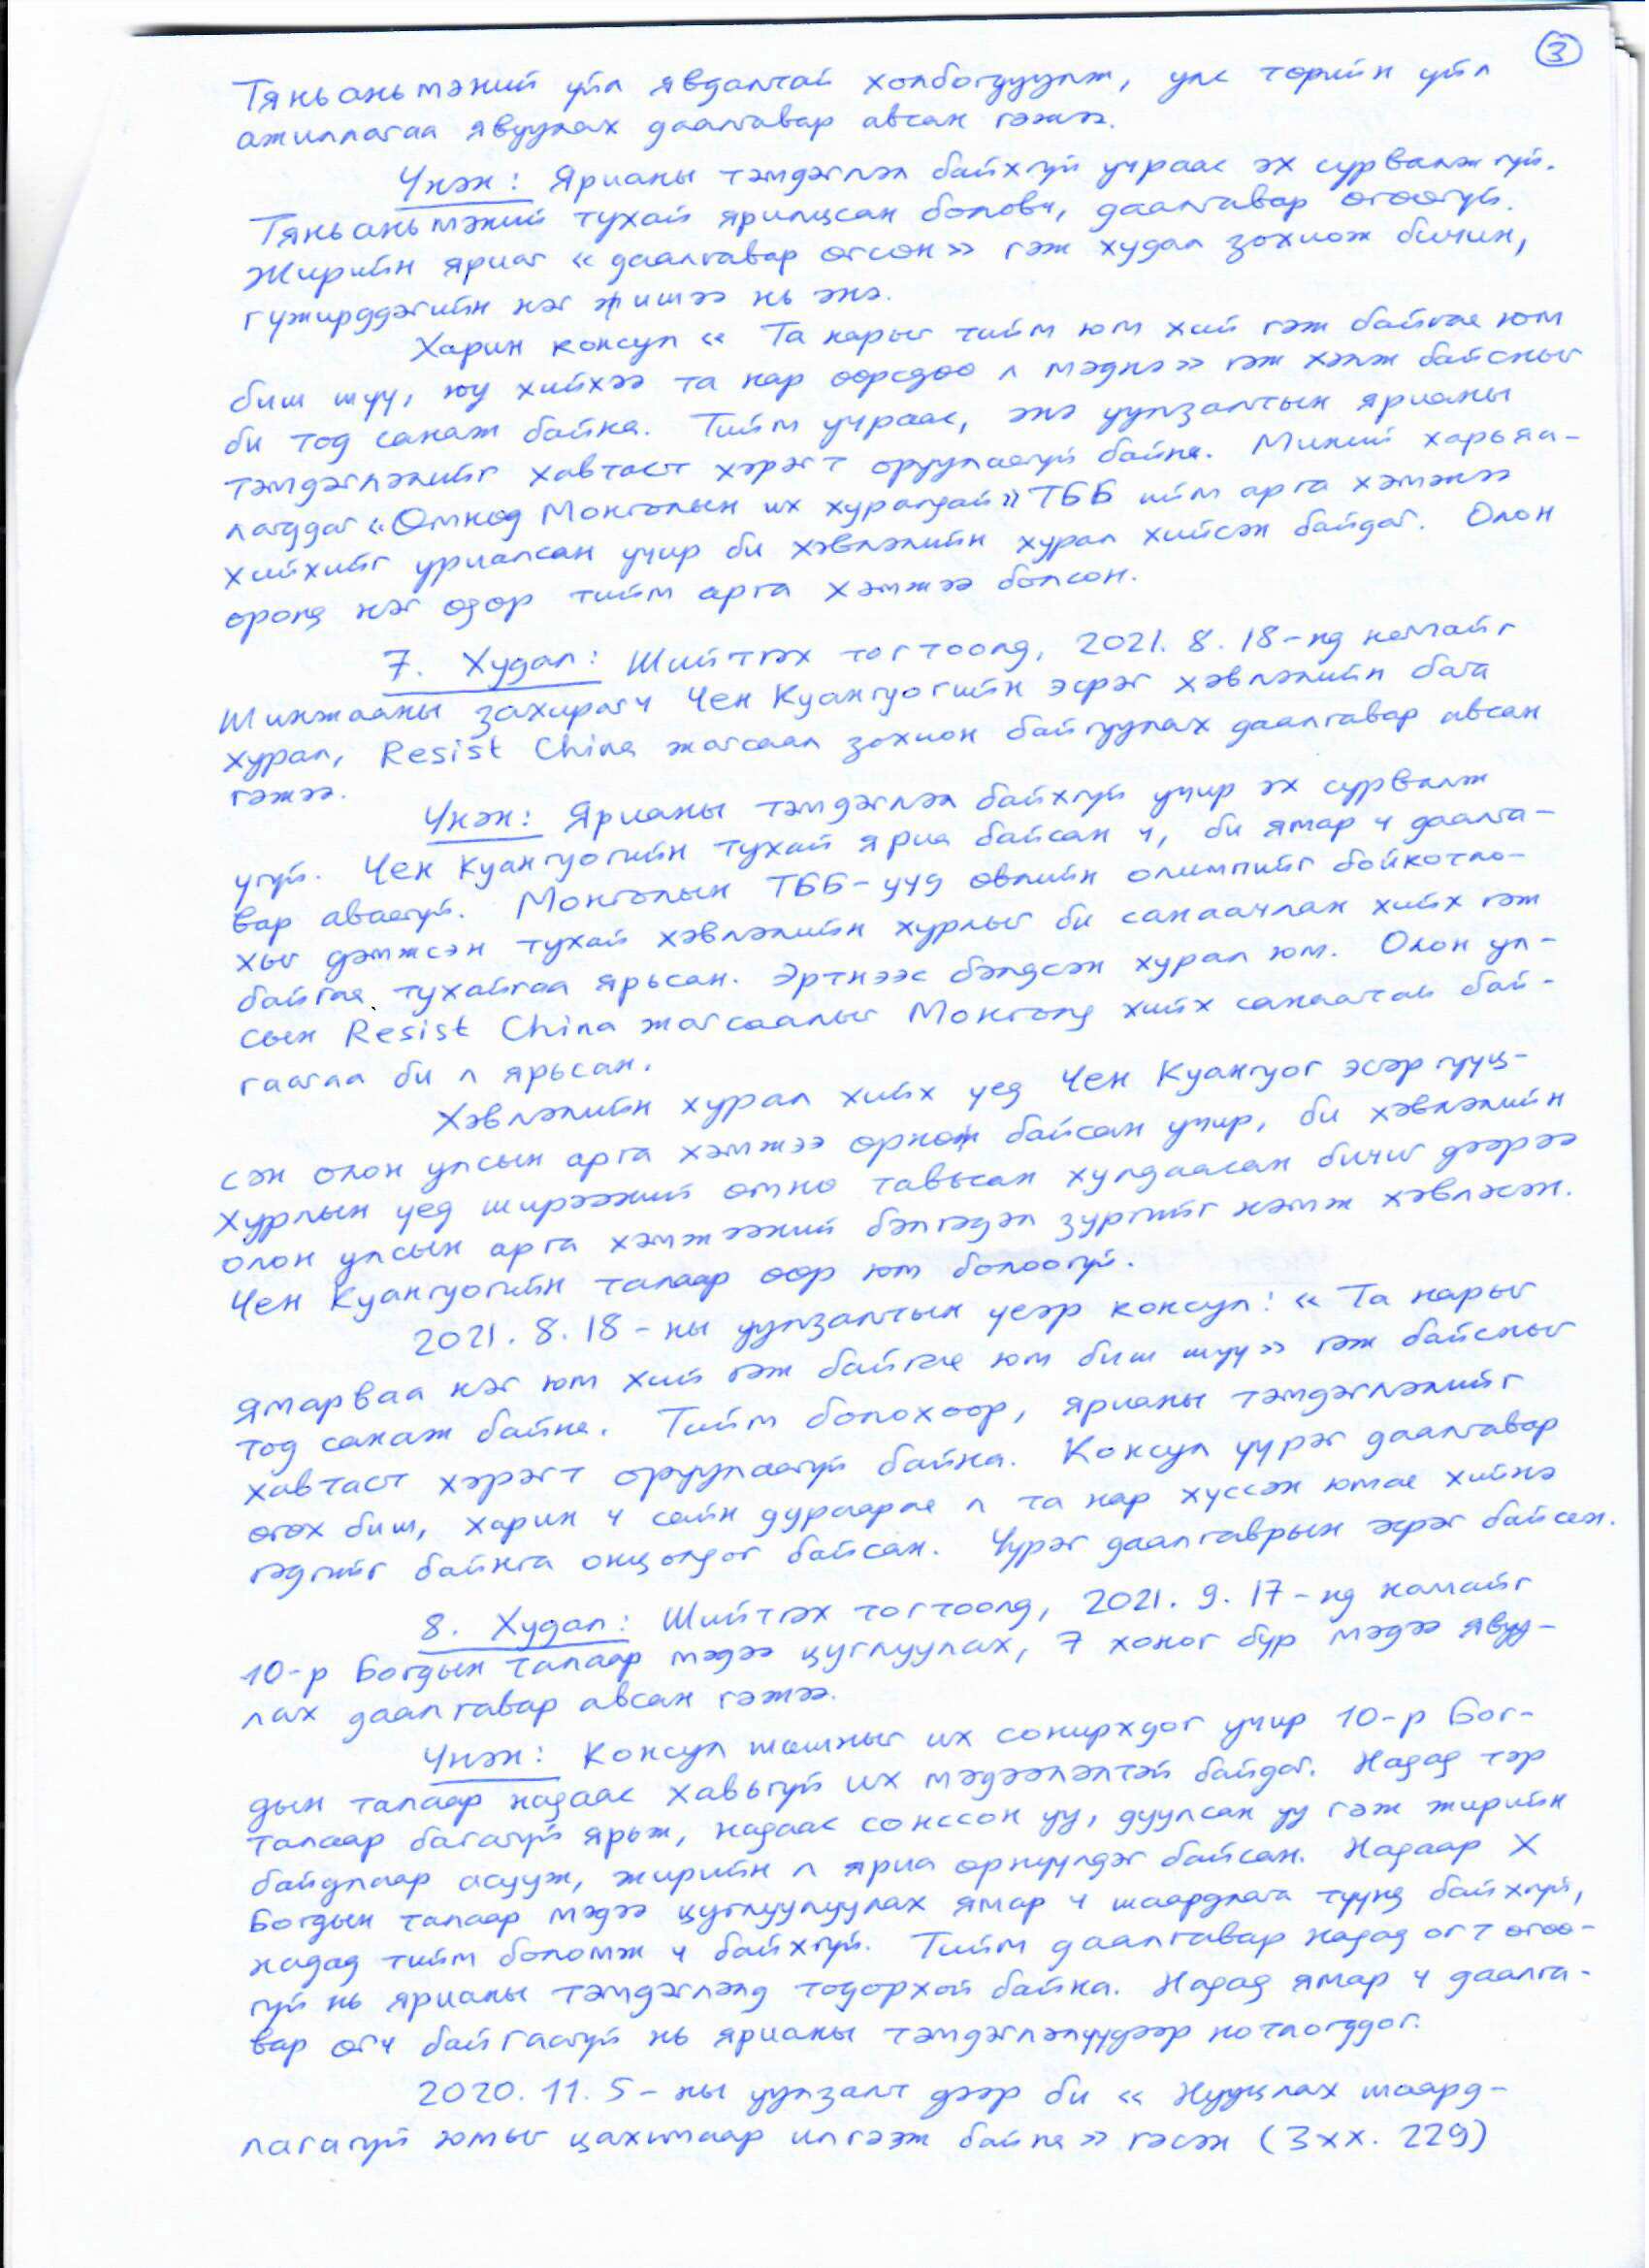 3
Тяньаньмэний үйл явдалтай холбогдуулж, улс төрийн үйл
ажиллагаа явуулах даалгавар авсан гэжээ.
Үнэн: Ярианы тэмдэглэл байхгүй учраас эх сурвалжгүй.
Тяньаньмэний тухай ярилцсан боловч, даалгавар өгөөгүй.
Жирийн яриаг «даалгавар өгсөн» гэж худал зохиож бичин,
гүжирддэгийн нэг жишээ нь энэ.
Харин консул « Та нарыг тийм юм хий гэж байгаа юм
биш шүү, юу хийхээ та нар өөрсдөө л мэднэ» гэж хэлж байсныг
би тод санаж байна. Тийм учраас, энэ уулзалтын ярианы
тэмдэглэлийг хавтаст хэрэгт оруулаагүй байна. Миний харьяа-
лагддаг «Өмнөд Монголын их хуралдай» ТББ ийм арга хэмжээ
хийхийг уриалсан учир би хэвлэлийн хурал хийсэн байдаг. Олон
оронд нэг өдөр тийм арга хэмжээ болсон.
7. Худал: Шийтгэх тогтоолд, 2021. 8. 18-нд намайг
Шинжааны захирагч Чен Куангуогийн эсрэг хэвлэлийн бага
хурал, Resist China жагсаал зохион байгуулах даалгавар авсан
гэжээ.
Үнэн: Ярианы тэмдэглэл байхгүй учир эх сурвалж
үгүй. Чен Куангуогийн тухай яриа байсан ч, би ямар ч даалга-
вар аваагүй. Монголын ТББ-ууд өвлийн олимпийг бойкотло-
хыг дэмжсэн тухай хэвлэлийн хурлыг би санаачлан хийх гэж
байгаа тухайгаа ярьсан. Эртнээс бэлдсэн хурал юм. Олон ул-
сын Resist China жагсаалыг Монголд хийх санаатай бай-
гаагаа би л ярьсан.
Хэвлэлийн хурал хийх үед Чен Куангуог эсэргүүц-
сэн олон улсын арга хэмжээ өрнөж байсан учир, би хэвлэлийн
хурлын үед ширээний өмнө тавьсан хулдаасан бичиг дээрээ
олон улсын арга хэмжээний бэлгэдэл зургийг нэмж хэвлэсэн.
Чен Куангуогийн талаар өөр юм болоогүй.
2021. 8. 18-ны уулзалтын үеэр консул: « Та нарыг
ямарваа нэг юм хий гэж байгаа юм биш шүү» гэж байсныг
тод санаж байна. Тийм болохоор, ярианы тэмдэглэлийг
хавтаст хэрэгт оруулаагүй байна. Консул үүрэг даалгавар
өгөх биш, харин ч сайн дураараа л та нар хүссэн юмаа хийнэ
гэдгийг байнга онцолдог байсан. Үүрэг даалгаврын эсрэг байсан.
8. Худал: Шийтгэх тогтоолд, 2021. 9. 17-нд намайг
10-р Богдын талаар мэдээ цуглуулах, 7 хоног бүр мэдээ явуу-
лах даалгавар авсан гэжээ.
Үнэн: Консул шашныг их сонирхдог учир 10-р Бог-
дын талаар надаас хавьгүй их мэдээлэлтэй байдаг. Надад тэр
талаар багагүй ярьж, надаас сонссон уу, дуулсан уу гэж жирийн
байдлаар асууж, жирийн л яриа өрнүүлдэг байсан. Надаар X
Богдын талаар мэдээ цуглуулуулах ямар ч шаардлага түүнд байхгүй,
надад тийм боломж ч байхгүй. Тийм даалгавар надад огт өгөө-
гүй нь ярианы тэмдэглэлд тодорхой байна. Надад ямар ч даалга-
вар өгч байгаагүй нь ярианы тэмдэглэлүүдээр нотлогддог.
2020. 11. 5-ны уулзалт дээр би « Нууцлах шаард-
лагагүй юмыг цахимаар илгээж байна» гэсэн (3хх. 229)